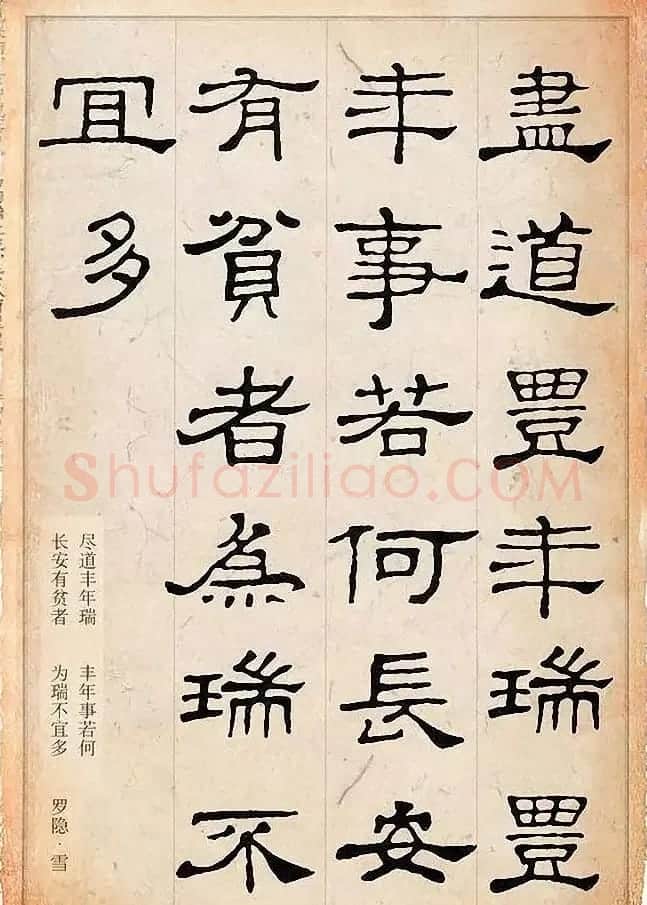 盡道豐年瑞豐
年事若何長安
有貧者為瑞不
宜多
尽道丰年瑞 丰年事若何
长安有贫者 为瑞不宜多 罗隐·雪
Shufaziliao.COM